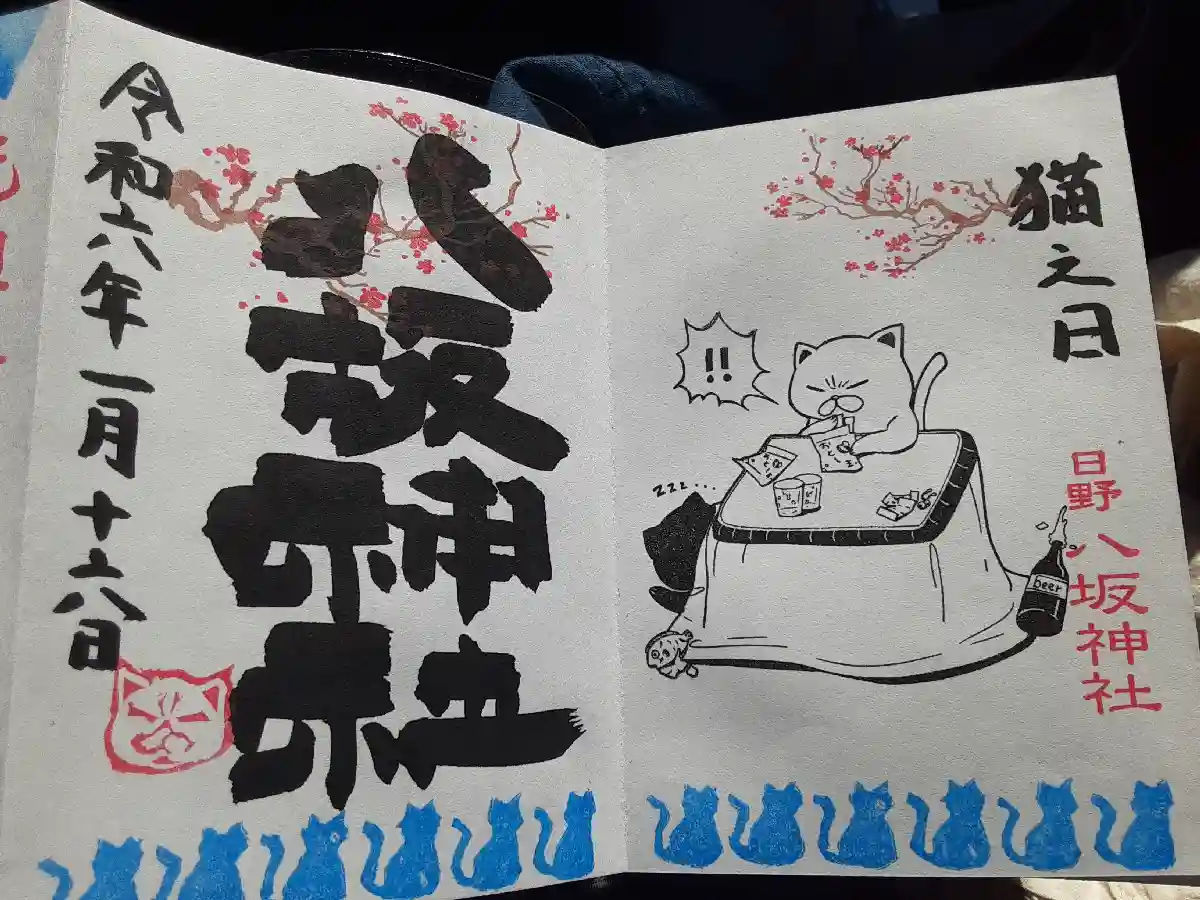 猫之日
日野八坂神社
!!
zzz...
beer
八坂神社
令和六年一月十六日